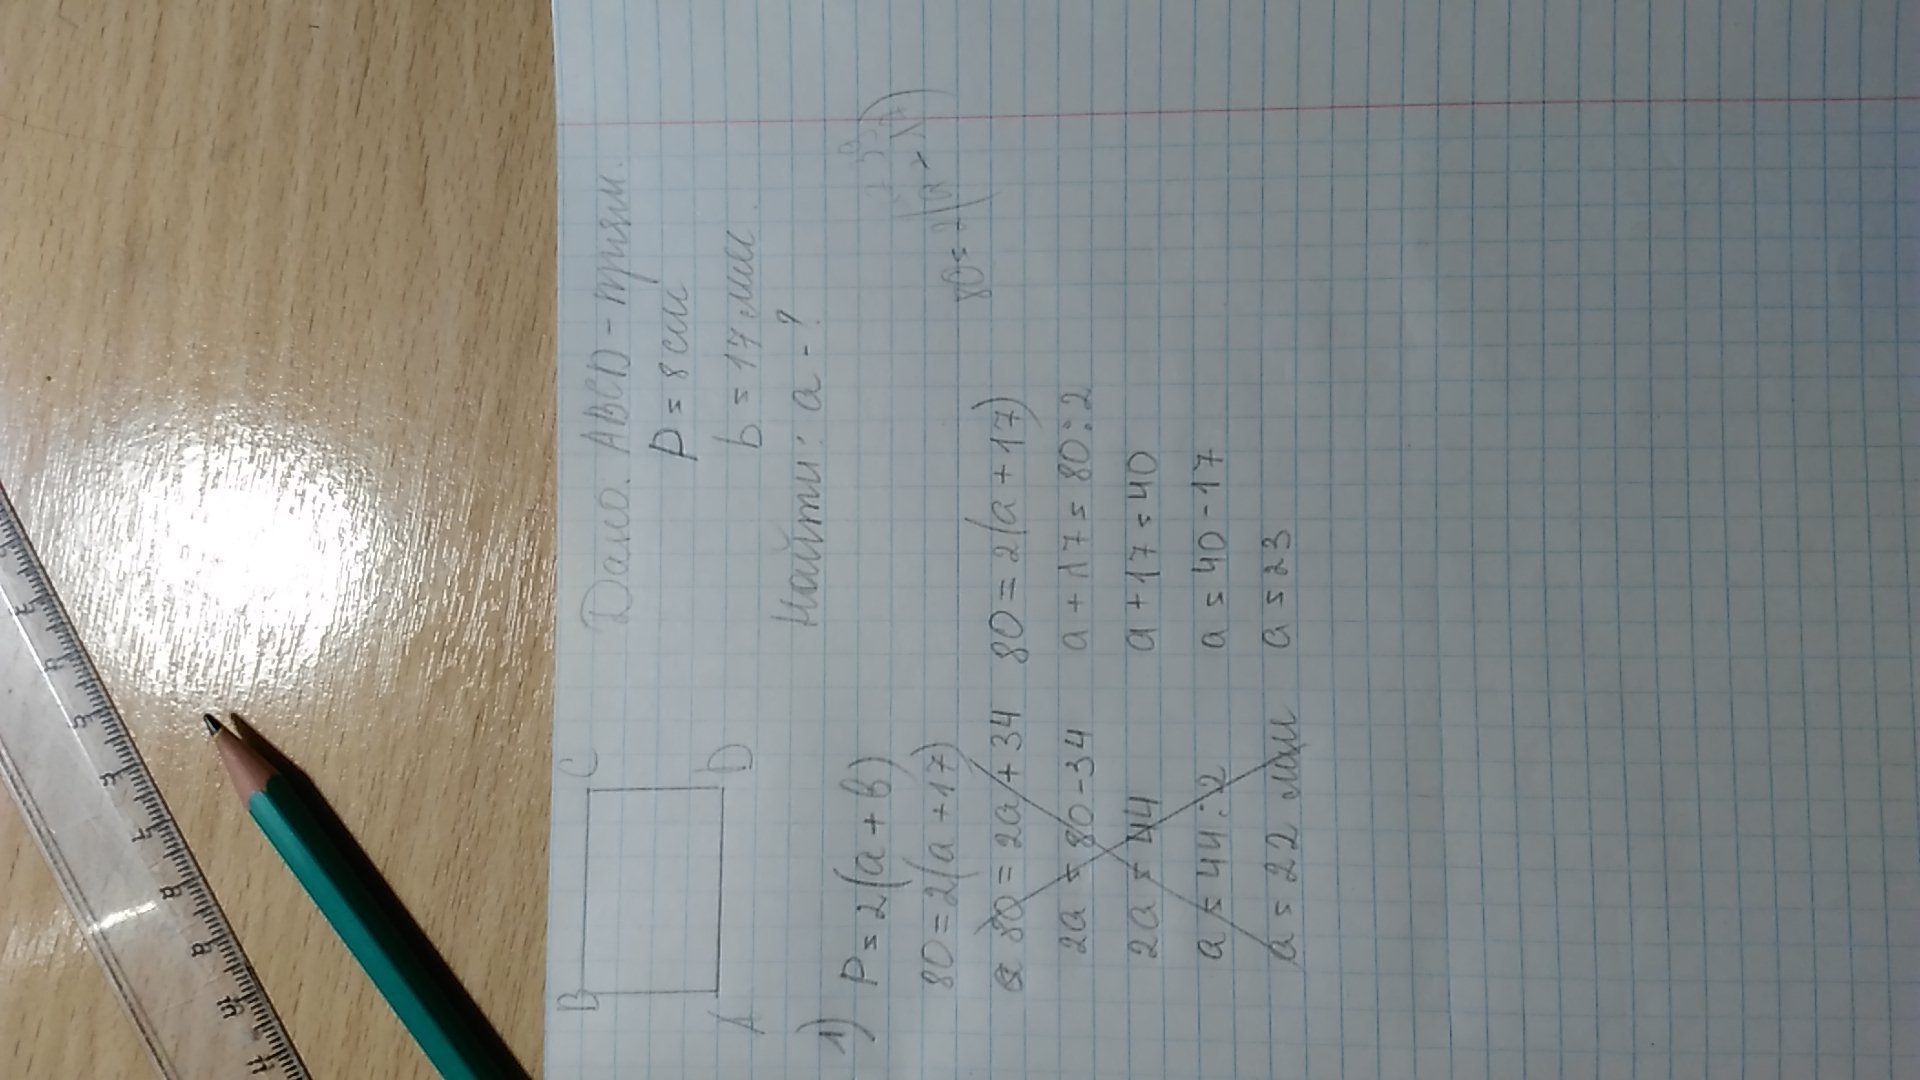 B C
A D
Дано. ABCD - прям.
P = 8 см
b = 17 мм.
Найти: a - ?
1) P = 2(a + b)
80 = 2(a + 17)
80 = 2a + 34
2a = 80 - 34
2a = 44
a = 44 : 2
a = 22 мм
80 = 2(a + 17)
a + 17 = 80 : 2
a + 17 = 40
a = 40 - 17
a = 23
80 = 2(a + 17)